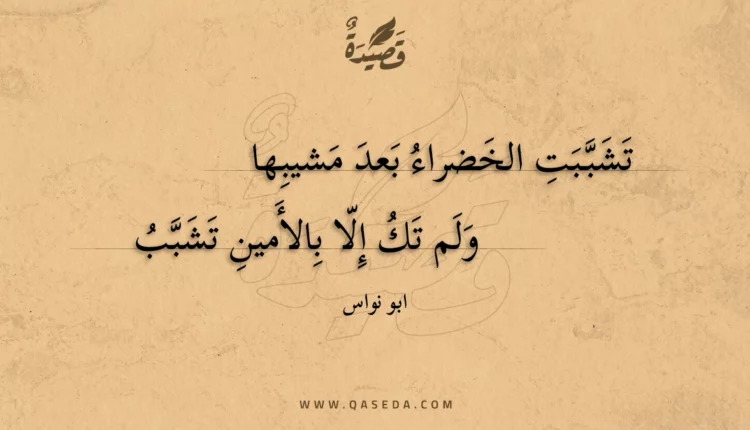 قَصِيْدَةٌ
تَشَبَّبَتِ الخَضراءُ بَعدَ مَشيبِها
وَلَم تَكُ إِلّا بِالأَمينِ تَشَبَّبُ
ابو نواس
WWW.QASEDA.COM